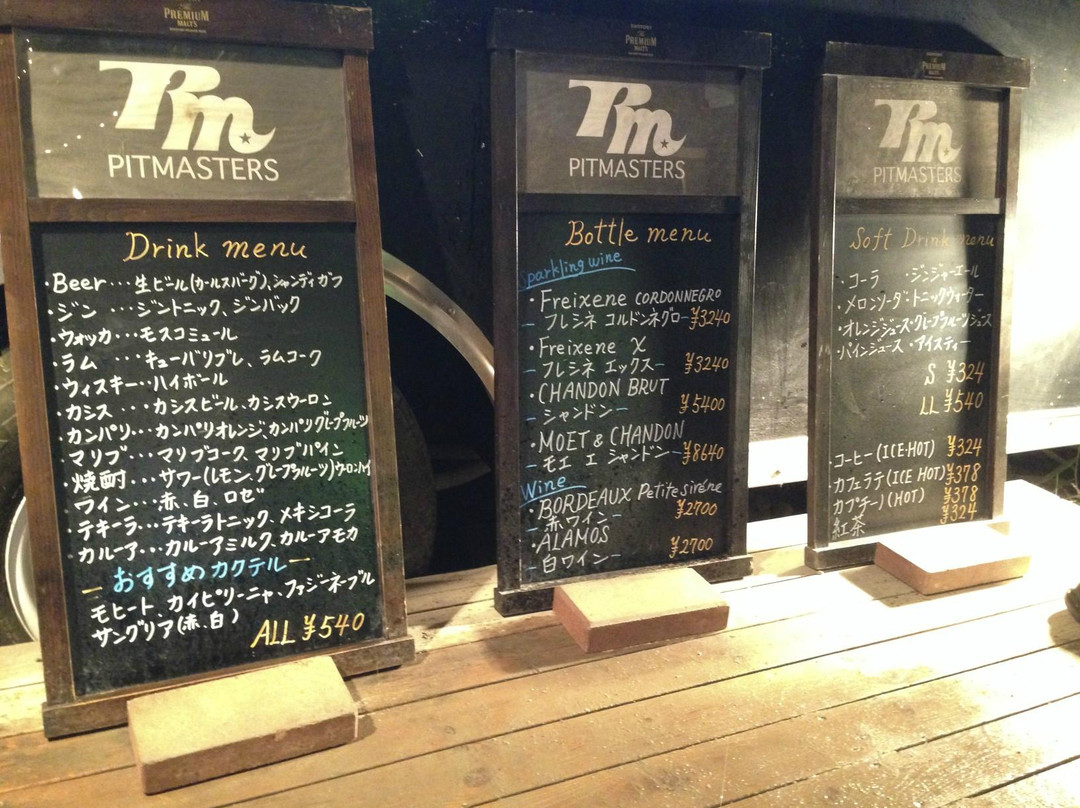 THE PREMIUM MALT'S
Pm
PITMASTERS
Drink menu
・Beer・・・生ビール(カールスバーグ)、シャンディガフ
・ジン ・・・ジントニック、ジンバック
・ウォッカ・・・モスコミュール
・ラム ・・・キューバリブレ、ラムコーク
・ウィスキー・・ハイボール
・カシス・・・カシスビール、カシスウーロン
・カンパリ・・・カンパリオレンジ、カンパリグレープフルーツ
・マリブ・・・マリブコーク、マリブパイン
・焼酎・・・サワー(レモン、グレープフルーツ)ウーロンハイ
ワイン・・・赤、白、ロゼ
・テキーラ・・・テキーラトニック、メキシコーラ
カルーア・・・カルーアミルク、カルーアモカ
ー おすすめカクテル ー
モヒート、カイピリーニャ、ファジーネーブル
サングリア(赤、白)
ALL ¥540
PREMIUM MALT'S
Pm
PITMASTERS
Bottle menu
Sparkling wine
・Freixene CORDONNEGRO
ー フレシネ コルドンネグロー ¥3240
・Freixene X
ー フレシネ エックスー ¥3240
・CHANDON BRUT
ー シャンドンー ¥5400
・MOET & CHANDON
ー モエ エ シャンドンー ¥8640
Wine
・BORDEAUX Petite sirène
ー赤ワインー ¥2700
・ALAMOS
ー白ワインー ¥2700
PREMIUM MALT'S
Pm
PITMASTERS
Soft Drink menu
・コーラ ・ジンジャーエール
・メロンソーダ・トニックウォーター
・オレンジジュース・グレープフルーツジュース
・パインジュース・アイスティー
S ¥324
LL ¥540
コーヒー(ICE・HOT) ¥324
カフェラテ(ICE HOT) ¥378
カプチーノ(HOT) ¥378
紅茶 ¥324